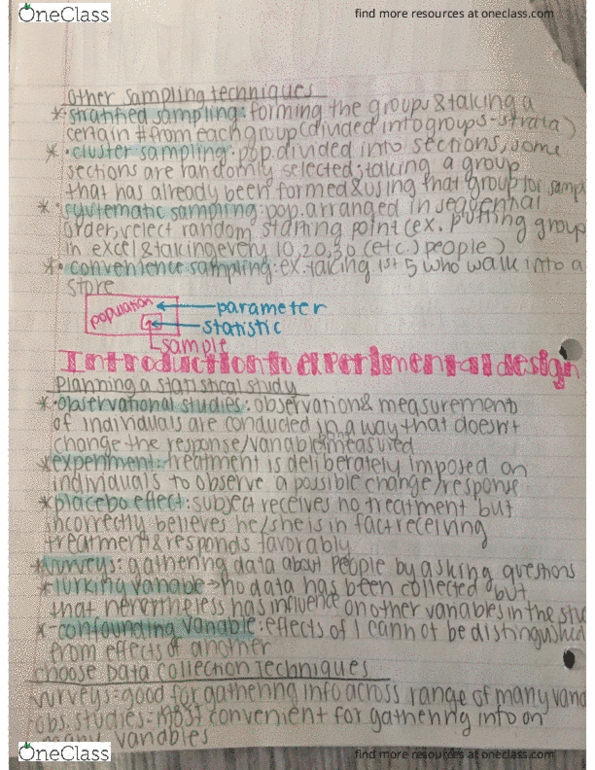 OneClass
find more resources at oneclass.com
other sampling techniques
* stratified sampling: forming the groups & taking a
certain # from each group (divided into groups - strata)
* • cluster sampling • pop. divided into sections, some
sections are randomly selected; taking a group
that has already been formed & using that group for samp
* • systematic sampling: pop. arranged in sequential
order, select random starting point (ex. putting group
in excel & taking every 10, 20, 30 (etc.) people)
* • convenience sampling: ex. taking 1st 5 who walk into a
store
population
parameter
statistic
sample
Introduction to experimental design
planning a statistical study
* • observational studies: observation & measurement
of individuals are conducted in a way that doesn't
change the response/variable measured
* experiment: treatment is deliberately imposed on
individuals to observe a possible change/response
* placebo effect: subject receives no treatment but
incorrectly believes he/she is in fact receiving
treatment & responds favorably
* surveys: gathering data about people by asking questions
* lurking variable → no data has been collected but
that nevertheless has influence on other variables in the stu
* - confounding variable: effects of 1 cannot be distinguished
from effects of another
choose Data collection Techniques
surveys = good for gathering info across range of many varia
obs. studies = most convenient for gathering info on
many variables
OneClass
find more resources at oneclass.com